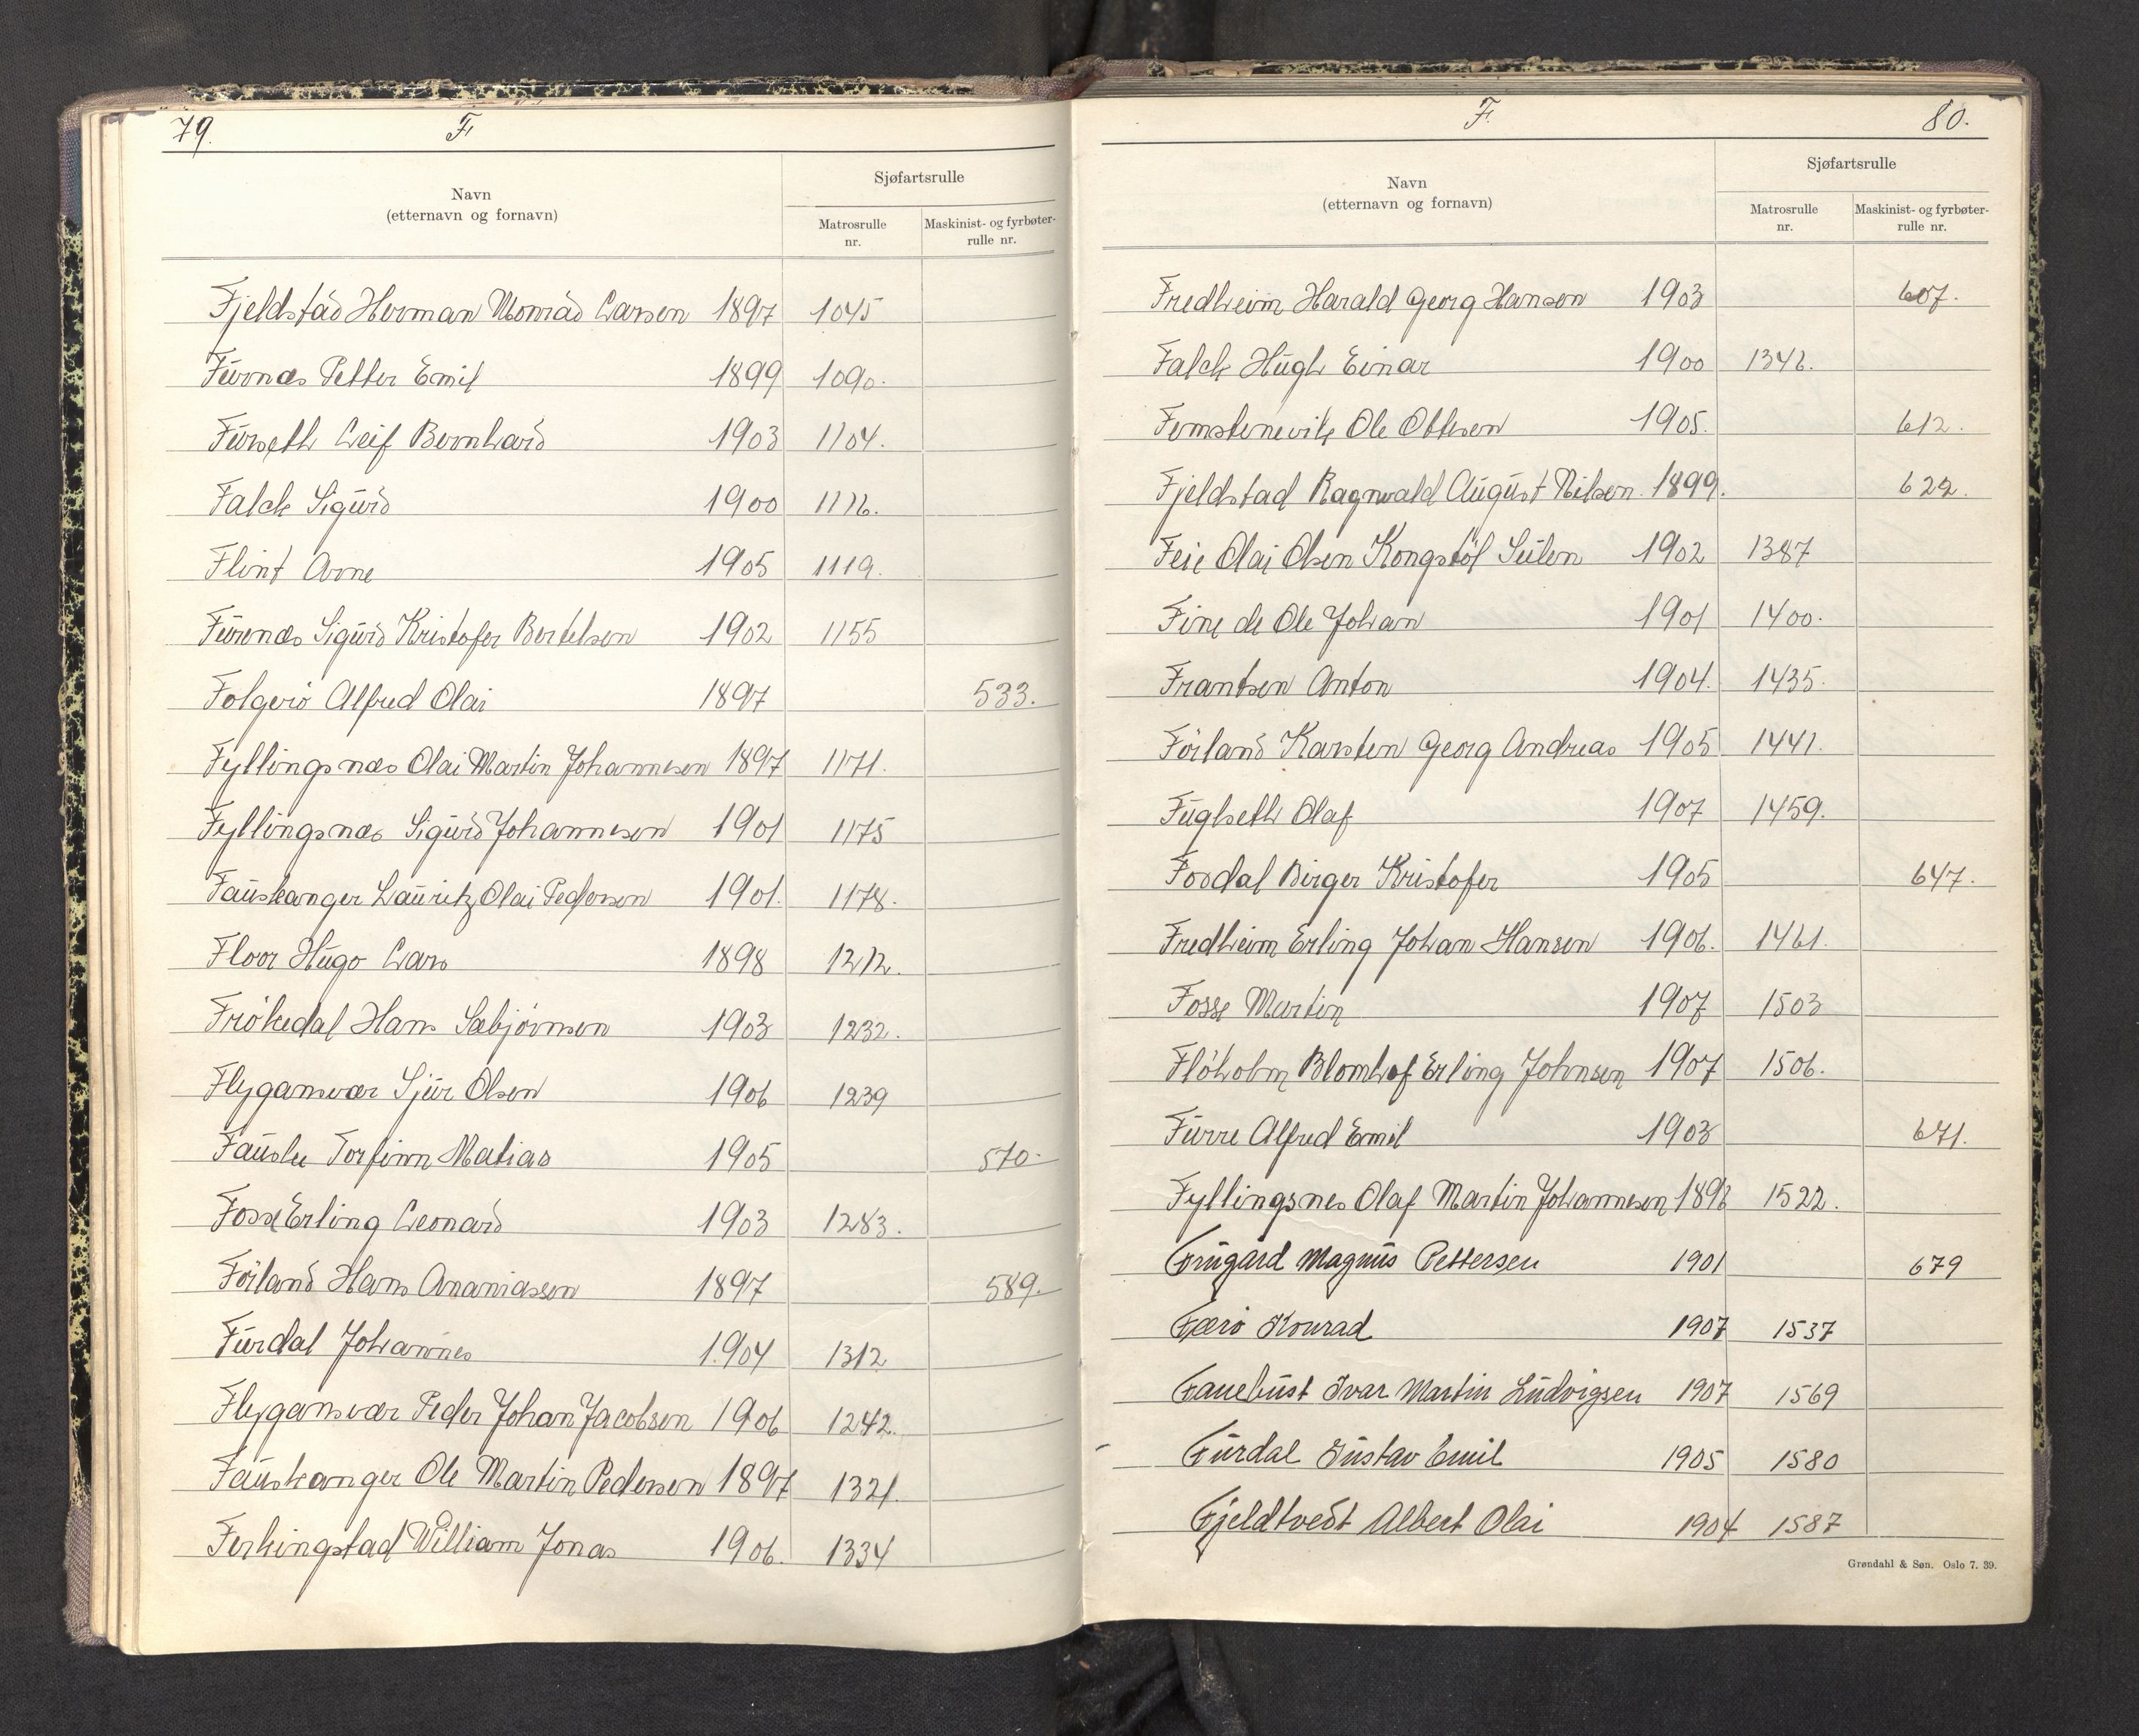 79. F
Sjøfartsrulle
Navn
(etternavn og fornavn)
Matrosrulle nr.
Maskinist- og fyrbøter-rulle nr.
Fjeldstad Herman Monrad Larsen 1897 1045
Furnæs Petter Emil 1899 1090.
Furseth Leif Bernhard 1903 1104.
Falck Sigurd 1900 1116.
Flint Arne 1905 1119.
Furenæs Sigurd Kristofer Bertelsen 1902 1155
Folgerö Alfred Olai 1897 533.
Fyllingsnæs Olai Martin Johannesen 1897 1171.
Fyllingsnæs Sigurd Johannesen 1901 1175
Fauskanger Lauritz Olai Pedersen 1901. 1178.
Floor Hugo Lars 1898 1212.
Frökedal Hans Sæbjörnsen 1903 1232.
Flygansvær Sjur Olsen 1906 1239
Fauske Torfinn Matias 1905 570.
Fosse Erling Leonard 1903 1283.
Förland Hans Ananiassen 1897 589.
Furdal Johannes 1904 1312
Flygansvær Peder Johan Jacobsen 1906 1242.
Fauskanger Ole Martin Pedersen 1897 1321.
Ferkingstad William Jonas 1906. 1334
F. 80.
Sjøfartsrulle
Navn
(etternavn og fornavn)
Matrosrulle nr.
Maskinist- og fyrbøter-rulle nr.
Fredheim Harald Georg Hansen 1903 607.
Falck Hugh Einar 1900 1346.
Femstenevik Ole Ottesen 1905. 612.
Fjeldstad Ragnvald August Nilsen. 1899. 622.
Feie Olai Olsen Kongstöl Sulen 1902 1387
Fine de Ole Johan 1901 1400.
Frantsen Anton 1904. 1435.
Förland Karsten Georg Andreas 1905 1441.
Fuglseth Olaf 1907 1459.
Fosdal Birger Kristofer 1905 647.
Fredheim Erling Johan Hansen 1906. 1461.
Fosse Martin 1907 1503
Flöholm Blomhof Erling Johnsen 1907 1506.
Furre Alfred Emil 1903 671.
Fyllingsnes Olaf Martin Johannesen 1898 1522.
Frugård Magnus Pettersen 1901 679
Færö Konrad 1907 1537
Fanebust Ivar Martin Ludvigsen 1907 1569
Furdal Gustav Emil 1905 1580
Fjeldtvedt Albert Olai 1904 1587
Grøndahl & Søn. Oslo 7. 39.